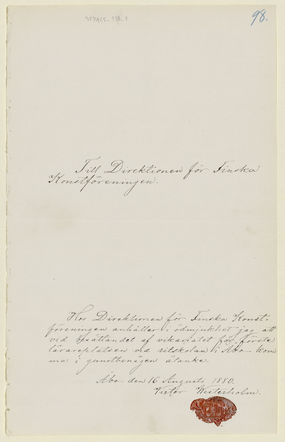 98.
Till Direktionen för Finska
Konstföreningen.
Hos Direktionen för Finska Konst-
föreningen anhåller i ödmjukhet jag att
vid besättandet af vikariatet för förste
lärareplatsen vid ritskolan i Åbo kom-
ma i gunstbenägen åtanke.
Åbo den 16 Augusti 1880.
Victor Westerholm.